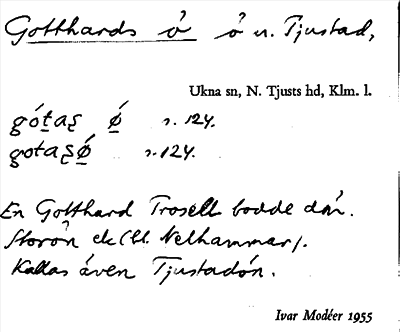 Gotthards ö ö n. Tjustad,
Ukna sn, N. Tjusts hd, Klm. l.
r. 124.
r. 124.
En Gotthard Trosell bodde där.
Storön ek (bl. Nelhammar).
Kallas även Tjustadön.
Ivar Modéer 1955